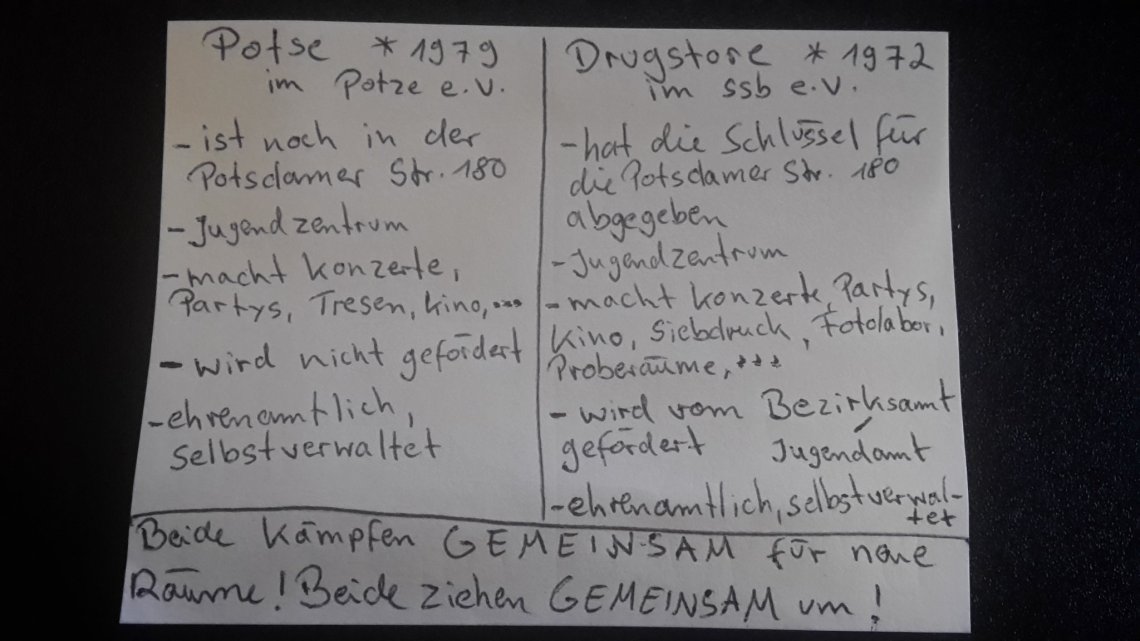 Potse * 1979
im Potze e.V.
- ist noch in der
Potsdamer Str. 180
- Jugendzentrum
- macht Konzerte,
Partys, Tresen, Kino, ...
- wird nicht gefördert
- ehrenamtlich,
selbstverwaltet
Drugstore * 1972
im ssb e.V.
- hat die Schlüssel für
die Potsdamer Str. 180
abgegeben
- Jugendzentrum
- macht Konzerte, Partys,
Kino, Siebdruck, Fotolabor,
Proberäume, ...
- wird vom Bezirksamt /
gefördert Jugendamt
- ehrenamtlich, selbstverwal-
tet
Beide kämpfen GEMEINSAM für neue
Räume! Beide ziehen GEMEINSAM um!